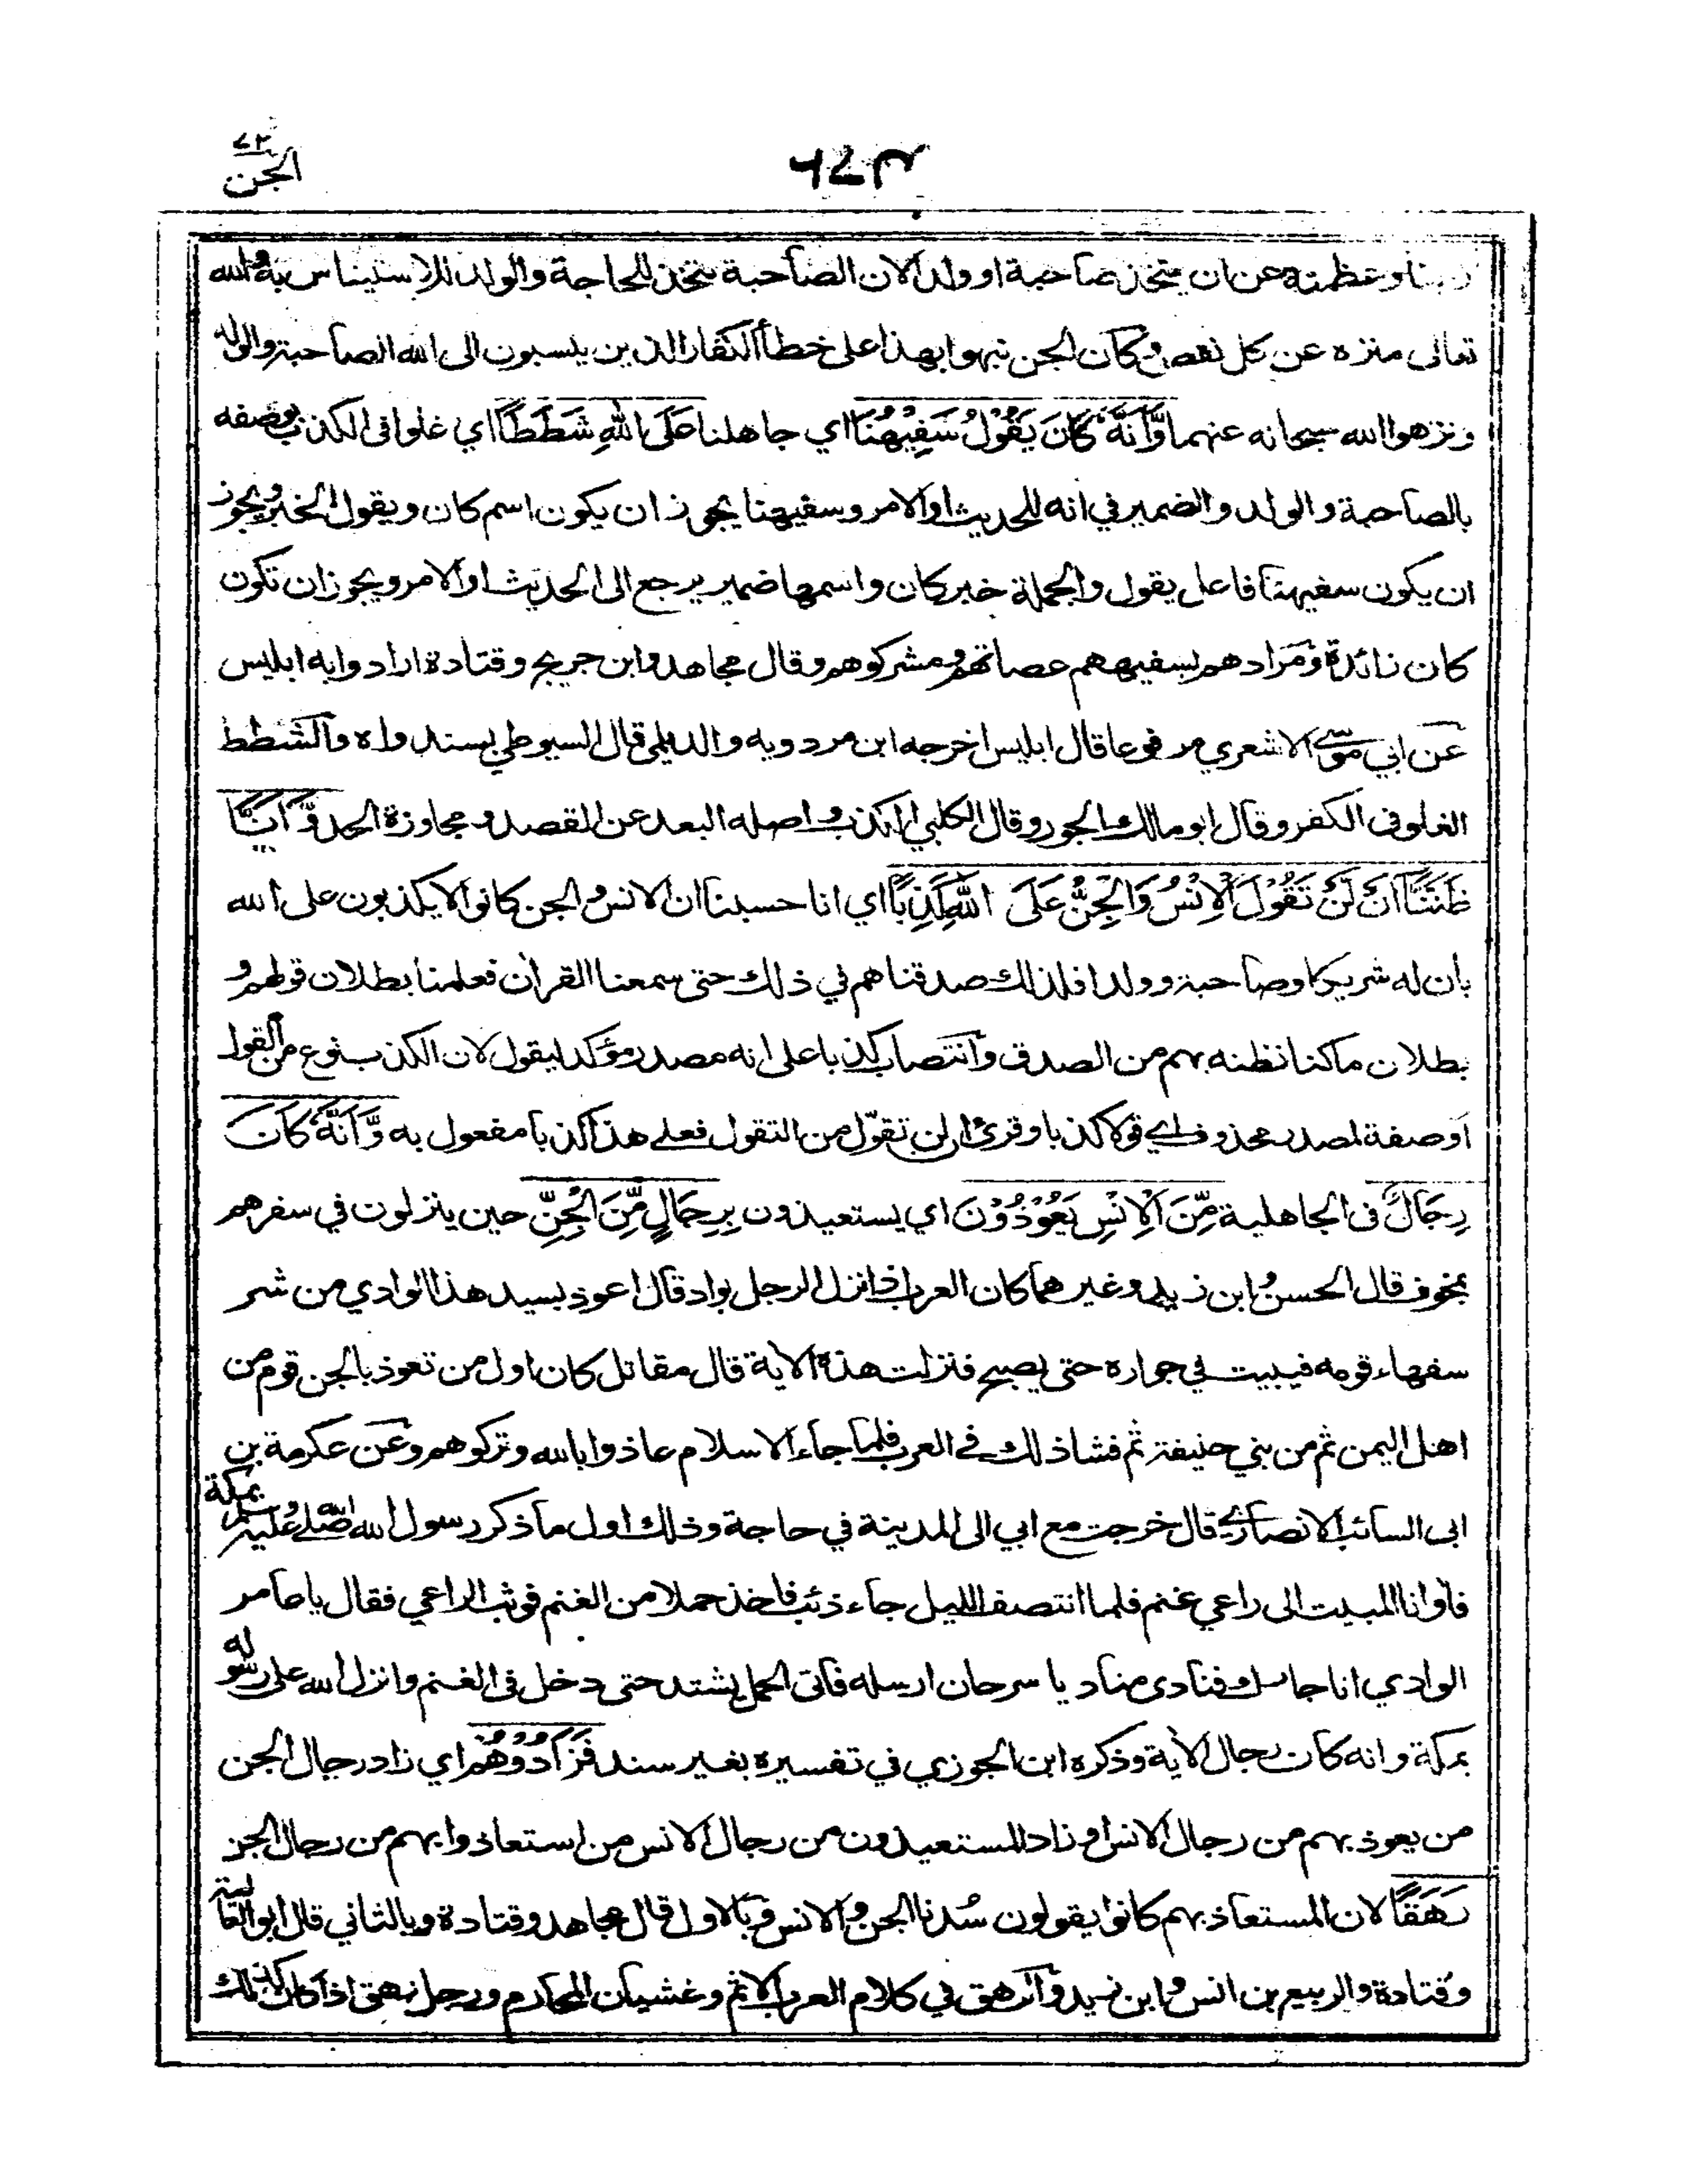 ٧٢
الجن
ربنا وعظمته عن ان يتخذ صاحبة او ولدا لان الصاحبة تتخذ للحاجة والولد للاستيناس به والله
تعالى منزه عن كل نقص وكأن الجن نبهوا بهذا على خطأ الكفار الذين ينسبون الى الله الصاحبة والولد
ونزهوا الله سبحانه عنهما وَّاَنَّهٗ كَانَ يَقُوْلُ سَفِيْهُنَا اي جاهلنا عَلَى اللهِ شَطَطًا اي غلوا فى الكذب بوصفه
بالصاحبة والولد والضمير في انه للحديث او الامر وسفيهنا يجوز ان يكون اسم كان ويقول الخبر ويجوز
ان يكون سفيهنا فاعل يقول والجملة خبر كان واسمها ضمير يرجع الى الحديث او الامر ويجوز ان تكون
كان زائدة ومرادهم بسفيههم عصاتهم ومشركوهم وقال مجاهد وابن جريج وقتادة ارادوا به ابليس
عن ابي موسى الاشعري مرفوعا قال ابليس اخرجه ابن مردويه والديلمي قال السيوطي بسند واه والشطط
الغلو فى الكفر وقال ابو مالك الجور وقال الكلبي الكذب واصله البعد عن القصد ومجاوزة الحد وَّاَنَّا
ظَنَنَّا اَنْ لَّنْ تَقُوْلَ الْاِنْسُ وَالْجِنُّ عَلَى اللهِ كَذِبًا اي انا حسبنا ان الانس والجن كانوا لا يكذبون على الله
بأن له شريكا وصاحبة وولدا فلذلك صدقناهم في ذلك حتى سمعنا القرأن فعلمنا بطلان قولهم و
بطلان ما كنا نظنه بهم من الصدق وانتصاب كذبا على انه مصدر مؤكد ليقول لان الكذب نوع من القول
او صفة لمصدر محذوف اي قولا كذبا وقرئ ان لن تقوّل من التقول فعلى هذا كذبا مفعول به وَّاَنَّهٗ كَانَ
رِجَالٌ فى الجاهلية مِّنَ الْاِنْسِ يَعُوْذُوْنَ اي يستعيذون بِرِجَالٍ مِّنَ الْجِنِّ حين ينزلون في سفرهم
بمخوف قال الحسن وابن زيد وغيرهما كان العرب اذا نزل الرجل بواد قال اعوذ بسيد هذا الوادي من شر
سفهاء قومه فيبيت في جواره حتى يصبح فنزلت هذه الاية قال مقاتل كان اول من تعوذ بالجن قوم من
اهل اليمن ثم من بني حنيفة ثم فشا ذلك في العرب فلما جاء الاسلام عاذوا بالله وتركوهم وعن عكرمة بن
ابى السائب الانصاري قال خرجت مع ابي الى المدينة في حاجة وذلك اول ما ذكر رسول الله صلى الله عليه وسلم بمكة
فأوانا المبيت الى راعي غنم فلما انتصف الليل جاء ذئب فاخذ حملا من الغنم فوثب الراعي فقال يا عامر
الوادي انا جارك فنادى مناد يا سرحان ارسله فأتى الحمل يشتد حتى دخل فى الغنم وانزل الله على رسوله
بمكة وانه كان رجال الأية وذكره ابن الجوزي في تفسيره بغير سند فَزَادُوْهُمْ اي زاد رجال الجن
من يعوذ بهم من رجال الانس او زاد المستعيذون من رجال الانس من استعاذوا بهم من رجال الجن
رَهَقًا لان المستعاذ بهم كانوا يقولون سُدنا الجن والانس وبالاول قال مجاهد وقتادة وبالثاني قال ابو العالية
وقتادة والربيع بن انس وابن زيد والرهق في كلام العرب الاثم وغشيان المحارم ورجل رهق اذا كان كذلك